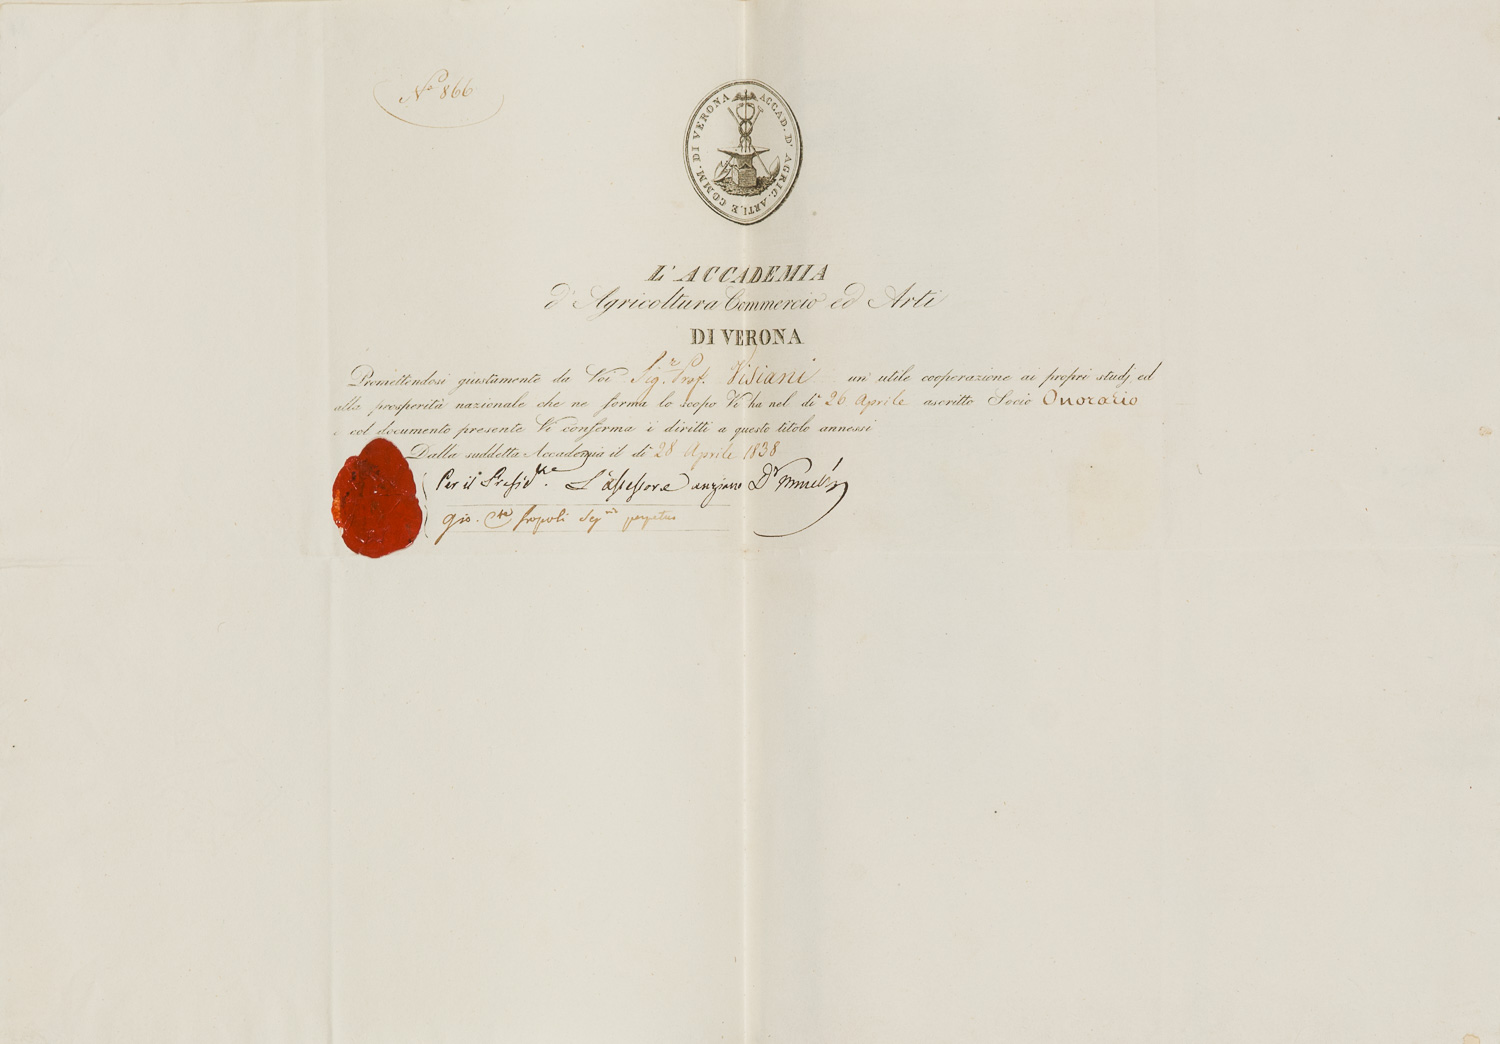 N.º 866
ACCAD. D' AGRIC. ARTI. E COMM. DI VERONA
L' ACCADEMIA
d' Agricoltura Commercio ed Arti
DI VERONA
Promettendosi giustamente da Voi Sig.r Prof. Visiani un' utile cooperazione ai propri studj ed
alla prosperità nazionale che ne forma lo scopo Vi ha nel dì 26 Aprile ascritto Socio Onorario
e col documento presente Vi conferma i diritti a questo titolo annessi
Dalla suddetta Accademia il dì 28 Aprile 1838
Per il Presid.te L'assessore anziano D.r
Gio. B.ta Seg.rio perpetuo